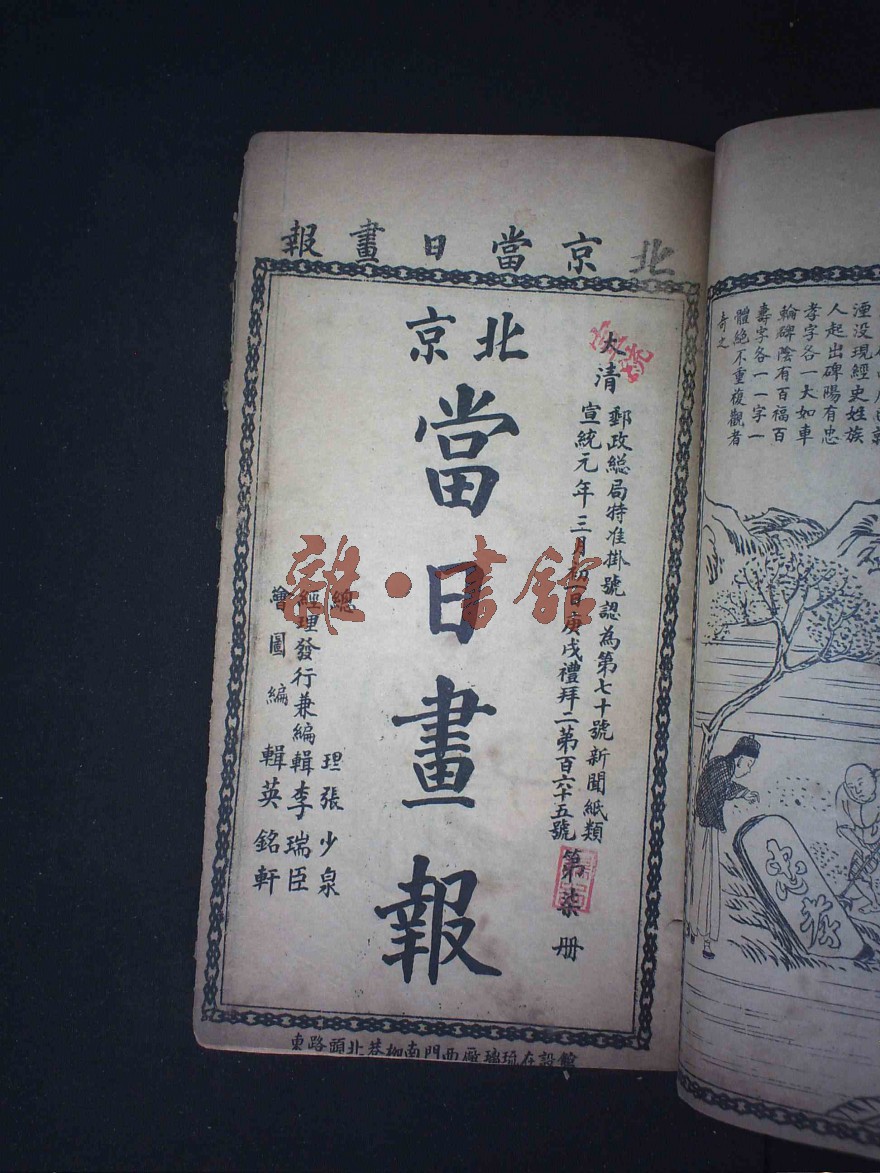 北京當日畫報
北京
當日畫報
大清
郵政総局特准掛號認為第七十號新聞紙類
宣統元年三月初一日庚戌禮拜二第百六十五號
第柒册
總理張少泉
經理發行兼編輯李瑞臣
繪圖編輯英銘軒
館設在琉璃厰西門南柳巷北頭路東
雜·書館
湮没現經史姓族
人起出碑陽有忠
孝字各一大如車
輪碑陰有百福百
壽字各一一字一
體絶不重複觀者
奇之
忠
孝